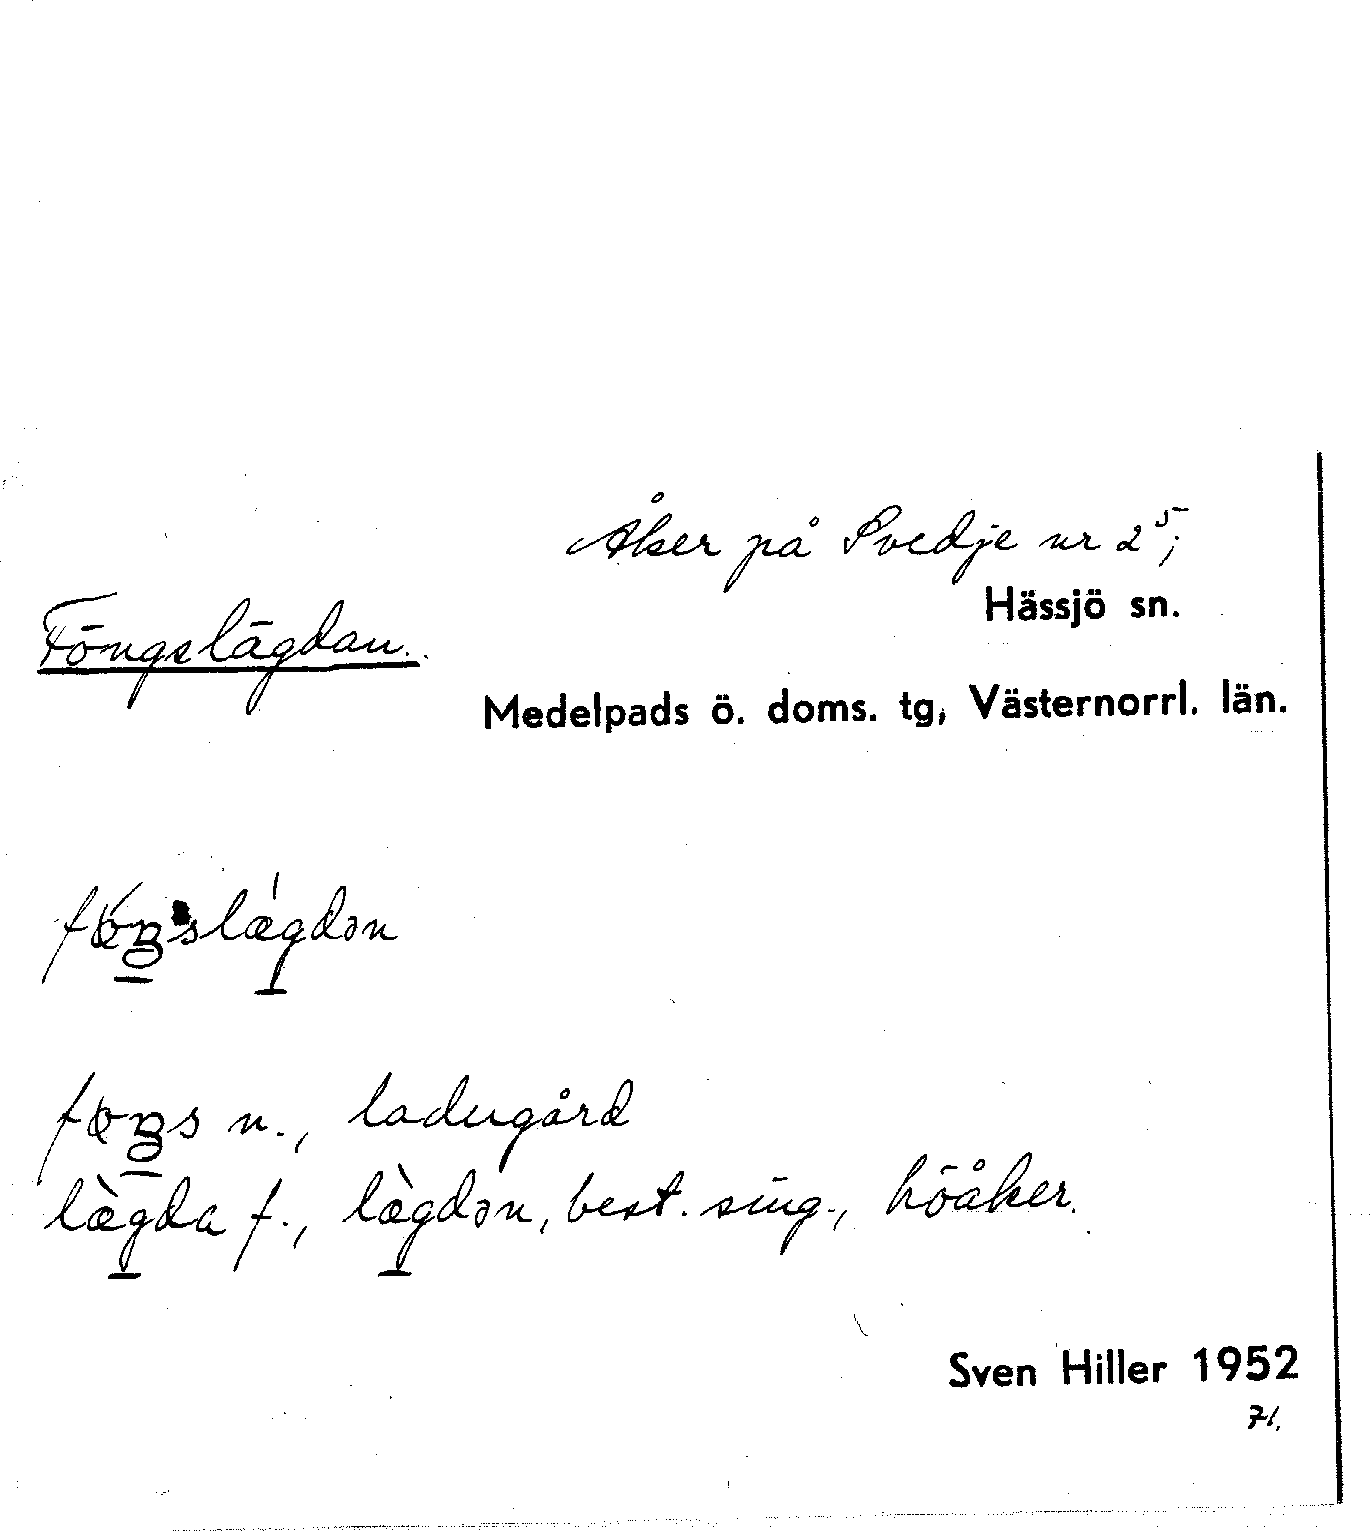 Åker på Svedje nr 2⁵;
Hässjö sn.
Föngslägdan.
Medelpads ö. doms. tg, Västernorrl. län.
fø̀ŋslǽgdən
føŋs n., ladugård
læ̀gda f., læ̀gdən, best. sing., höåker.
Sven Hiller 1952
71.